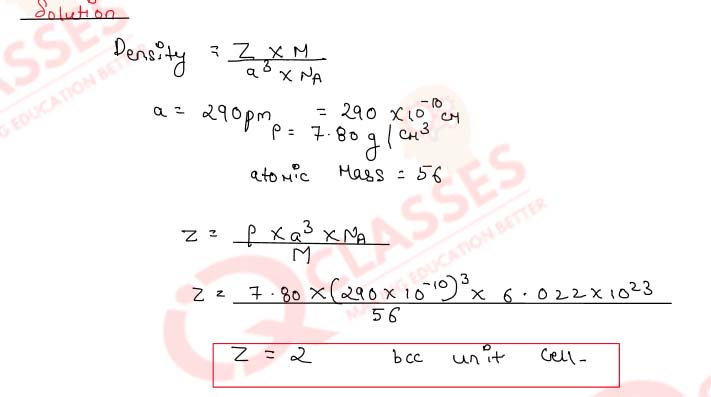 Solution
Density = Z × M / a³ × NA
a = 290pm = 290 × 10⁻¹⁰ cm
ρ = 7.80 g/cm³
atomic Mass = 56
Z = ρ × a³ × NA / M
Z = 7.80 × (290 × 10⁻¹⁰)³ × 6.022 × 10²³ / 56
Z = 2 bcc unit cell.
CLASSES
MAKING EDUCATION BETTER